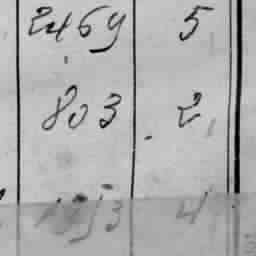 2469 5
803 2
4